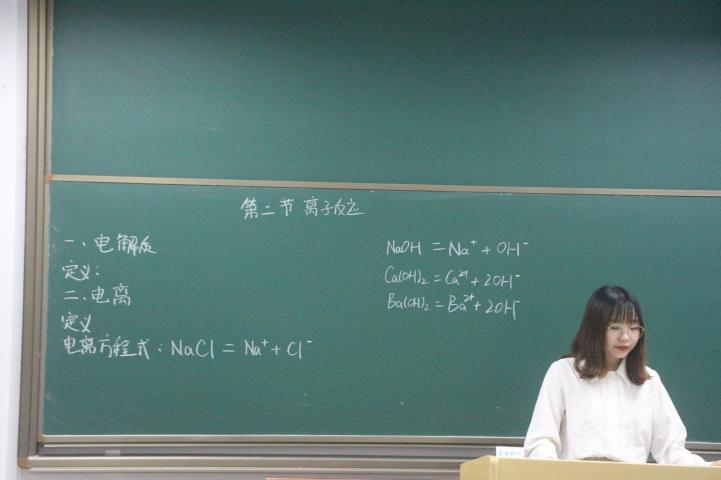 第二节 离子反应
一、电解质
定义：
二、电离
定义
电离方程式：NaCl = Na⁺ + Cl⁻
NaOH = Na⁺ + OH⁻
Ca(OH)₂ = Ca²⁺ + 2OH⁻
Ba(OH)₂ = Ba²⁺ + 2OH⁻